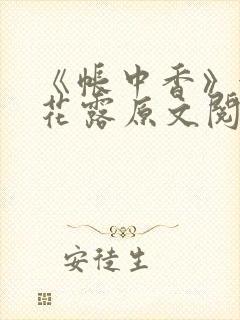 《帐中香》
花露原文阅
安徒生